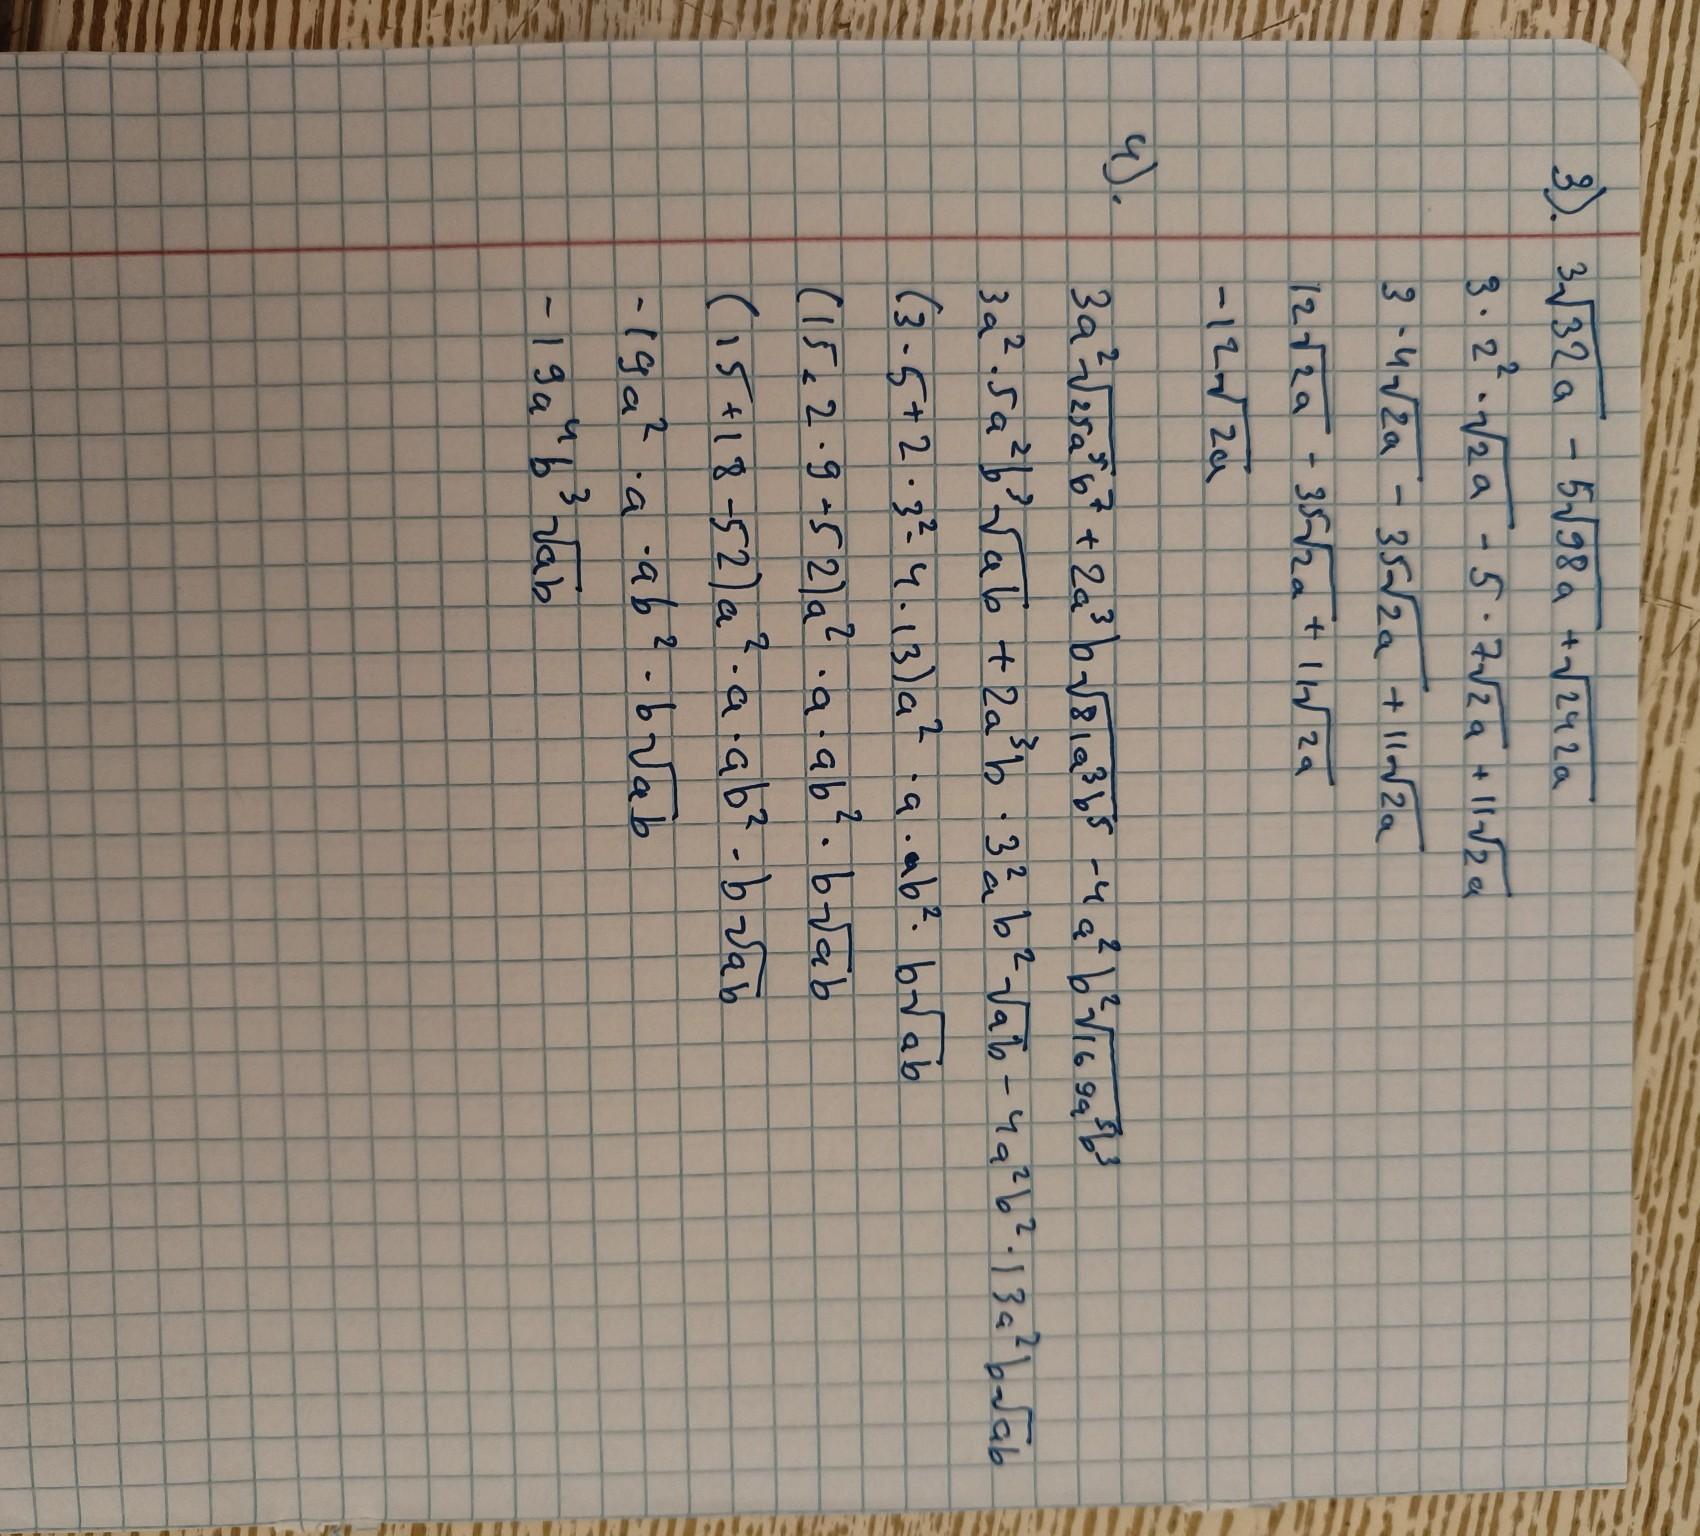 3). 3√32a - 5√98a + √242a
3 · 2² · √2a - 5 · 7√2a + 11√2a
3 · 4√2a - 35√2a + 11√2a
12√2a - 35√2a + 11√2a
-12√2a
4). 3a²√25a⁵b⁷ + 2a³b√81a³b⁵ - 4a²b²√169a⁵b³
3a² · 5a²b³√ab + 2a³b · 3²ab²√ab - 4a²b² · 13a²b√ab
(3 · 5 + 2 · 3² - 4 · 13)a² · a · ab² · b√ab
(15 + 2 · 9 - 52)a² · a · ab² · b√ab
(15 + 18 - 52)a² · a · ab² · b√ab
-19a² · a · ab² · b√ab
-19a⁴b³√ab